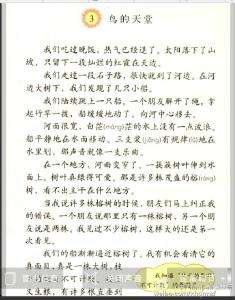 3 鸟的天堂
我们吃过晚饭，热气已经退了。太阳落下了山
坡，只留下一段灿烂的红霞在天边。
我们走过一段石子路，很快就到了河边。在河
边大树下，我们发现了几只小船。
我们陆续跳上一只船。一个朋友解开了绳，拿
起竹竿一拨，船缓缓地动了，向河中心移去。
河面很宽，白茫(máng)茫的水上没有一点波浪。
船平静地在水面移动。三支桨(jiǎng)有规律(lǜ)地在
水里划，那声音就像一支乐曲。
在一个地方，河面变窄了。一簇簇树叶伸到水
面上。树叶真绿得可爱。那是许多株茂盛的榕(róng)
树，看不出主干在什么地方。
当我说许多株榕树的时候，朋友们马上纠正我
的错误。一个朋友说那里只有一株榕树，另一个朋
友说是两株。我见过不少榕树，这样大的还是第一
次看见。
我们的船渐渐逼近榕树了。我有机会看清它的
真面目，真是一株大树，枝
不可计数。
生根，有许多根直垂到
我知道